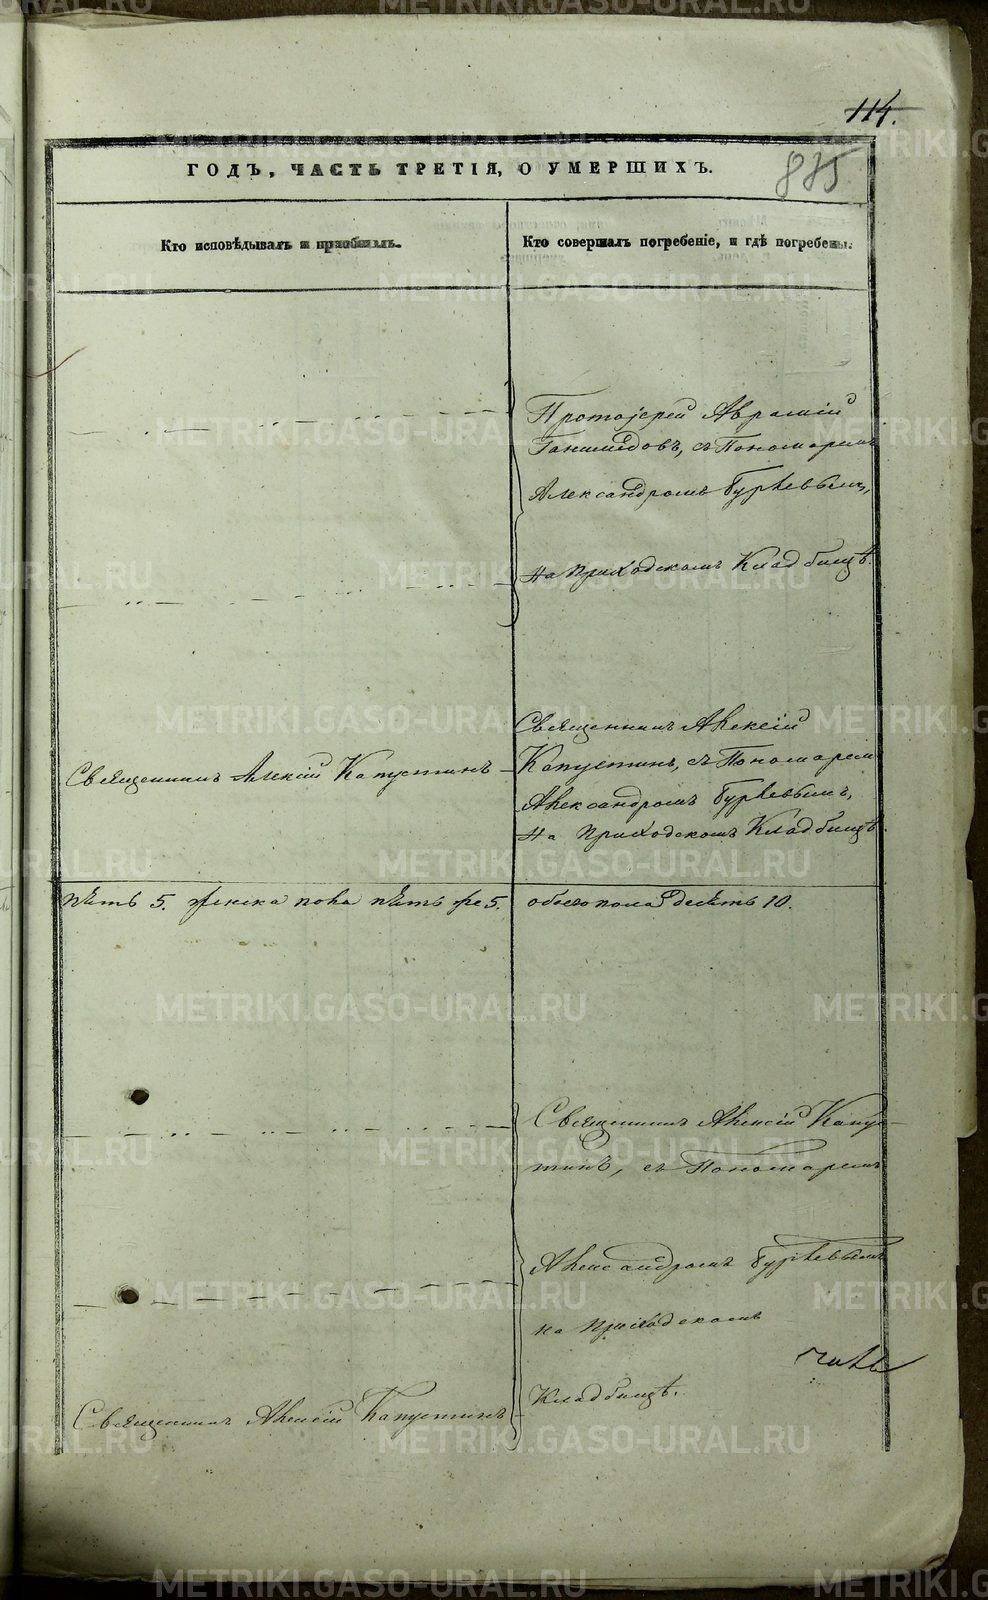 114.
875
ГОДЪ, ЧАСТЬ ТРЕТІЯ, О УМЕРШИХЪ.
Кто исповѣдывалъ и пріобщалъ.
Кто совершалъ погребеніе, и гдѣ погребены.
Протоіерей Аврамій
Ганимедовъ, съ Пономаремъ
Александромъ Гурьевымъ,
на Приходскомъ Кладбищѣ.
Священникъ Алексій Капустинъ
Священникъ Алексій
Капустинъ, съ Пономаремъ
Александромъ Гурьевымъ,
на Приходскомъ Кладбищѣ.
пять 5. женска пола пять же 5.
обоего пола десять 10.
Священникъ Алексій Капус-
тинъ, съ Пономаремъ
Александромъ Гурьевымъ
на Приходскомъ
Кладбищѣ.
Священникъ Алексій Капустинъ
METRIKI.GASO-URAL.RU